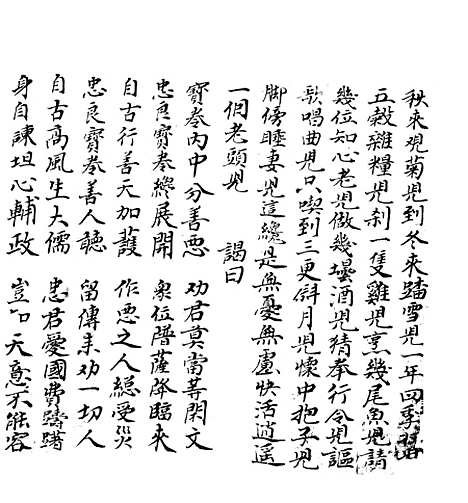 秋來观菊児到冬來踏雪児一年四季習
五穀雜糧児刹一隻雞児烹幾尾魚児請
幾位知心老児做幾壜酒児猜拳行令児謳
歌唱曲児只喫到三更斜月児懷中抱子児
脚傍睡妻児這纔是無憂無慮快活逍遥
一個老頭児　謁曰
寳卷内中分善恶　劝君莫當等閑文
忠良寳卷纔展開　衆位菩薩降臨来
自古行善天加護　作恶之人縂受災
忠良寳卷善人聼　留傳未劝一切人
自古高風生大儒　忠君愛國費躊躇
身自諫坦心輔政　豈知天意不能容